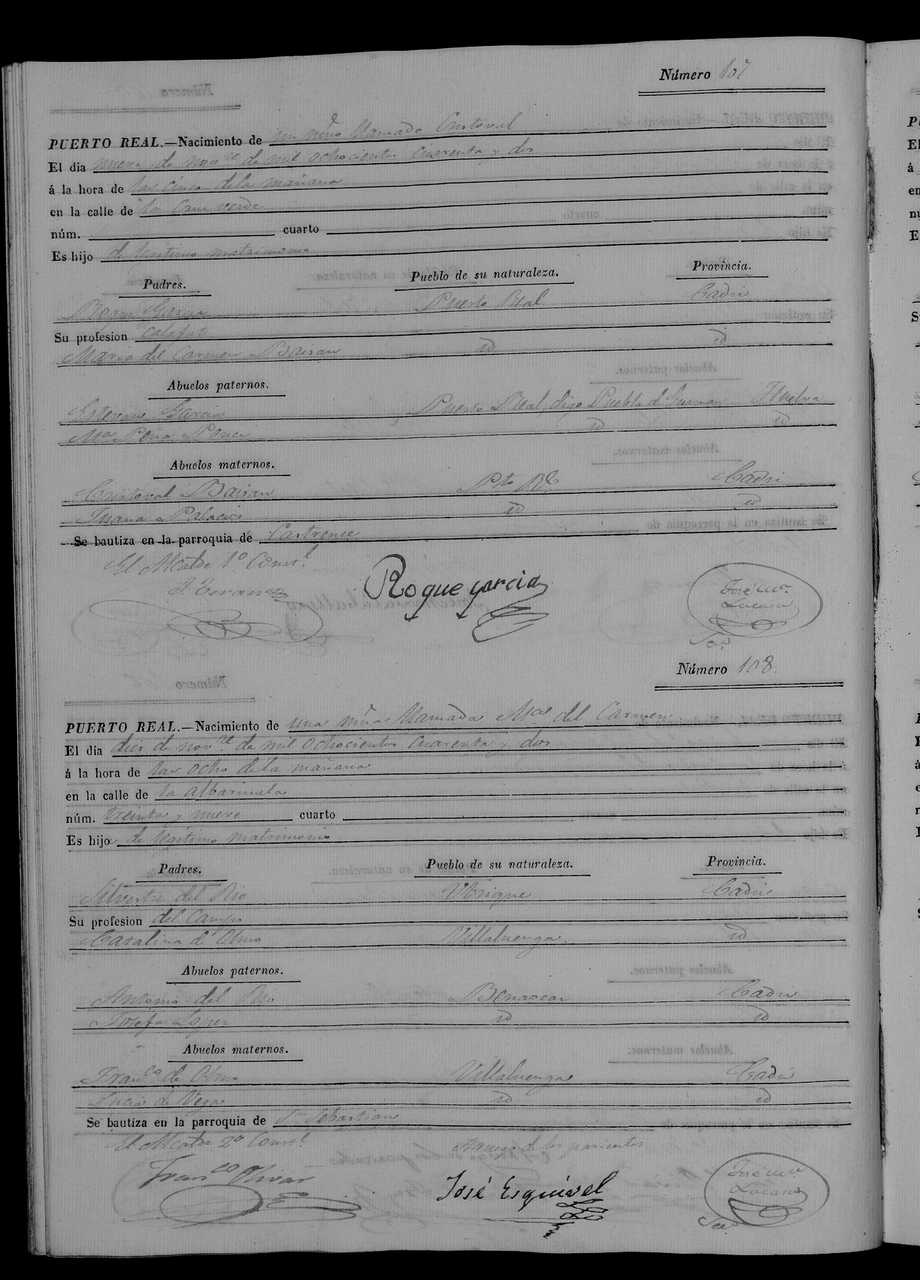 Número 107
PUERTO REAL.—Nacimiento de un niño llamado Cristoval
El dia nueve de novre de mil ochocientos cuarenta y dos
á la hora de las cinco de la mañana
en la calle de la Cruz verde
núm. cuarto
Es hijo de legitimo matrimonio
Padres. Pueblo de su naturaleza. Provincia.
Roque Garcia Puerto Real Cadiz
Su profesion calafate
Maria del Carmen Bairan id id
Abuelos paternos.
Garcia Puerto Real, digo Puebla de Guzman Huelva
Ma Ponce id id
Abuelos maternos.
Cristoval Bairan Pto Rl Cadiz
Juana Palacios id id
Se bautiza en la parroquia de Castrense
El Alcalde 1º Consl
Roque garcia
José Ma
Lozano
Sro
Número 108.
PUERTO REAL.—Nacimiento de una niña llamada Ma del Carmen
El dia diez de novre de mil ochocientos cuarenta y dos
á la hora de las ocho de la mañana
en la calle de la albarizuela
núm. treinta y nueve cuarto
Es hijo de legitimo matrimonio
Padres. Pueblo de su naturaleza. Provincia.
Silvestre del Rio Ubrique Cadiz
Su profesion del Campo
Catalina de Olmo Villaluenga id
Abuelos paternos.
Antonio del Rio Benaocaz Cadiz
Josefa Lopez id id
Abuelos maternos.
Franco de Olmo Villaluenga Cadiz
Lucia de Vega id id
Se bautiza en la parroquia de Sn Sebastian
El Alcalde 2º Consl A ruego de los parientes
Franco Olivar
José Esquivel
José Ma
Lozano
Sro